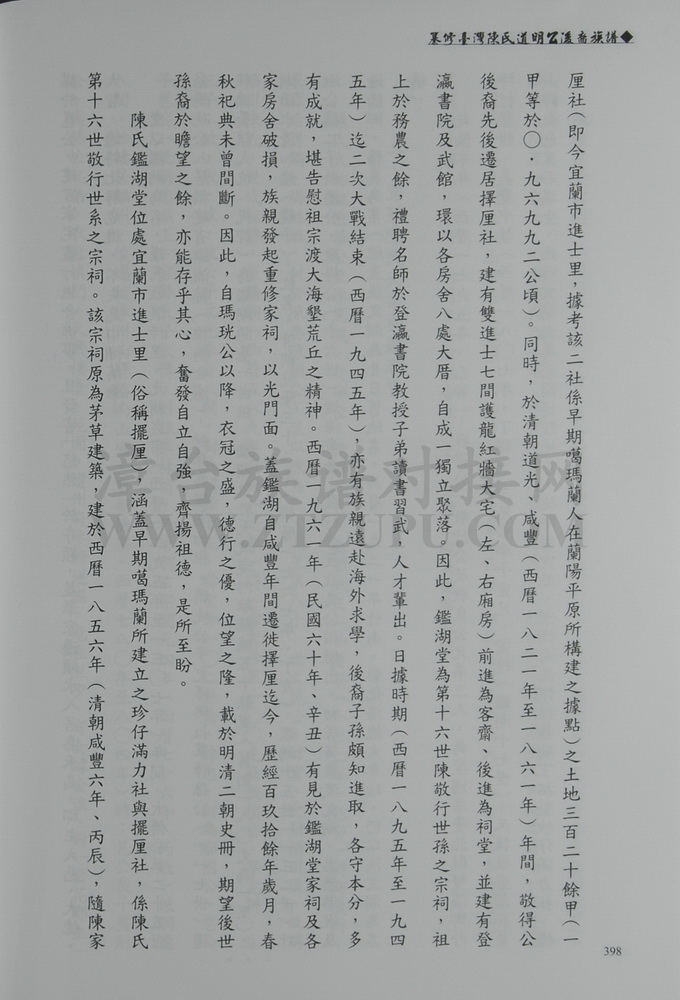 纂修臺灣陳氏道明公後裔族譜◆
厘社(即今宜蘭市進士里,據考該二社係早期噶瑪蘭人在蘭陽平原所構建之據點)之土地三百二十餘甲(一
甲等於〇・九六九九二公頃)。同時,於清朝道光、咸豐(西曆一八二一年至一八六一年)年間,敬得公
後裔先後遷居擇厘社,建有雙進士七間護龍紅牆大宅(左、右廂房)前進為客齋、後進為祠堂,並建有登
瀛書院及武館,環以各房舍八處大厝,自成一獨立聚落。因此,鑑湖堂為第十六世陳敬行世孫之宗祠,祖
上於務農之餘,禮聘名師於登瀛書院教授子弟讀書習武,人才輩出。日據時期(西曆一八九五年至一九四
五年)迄二次大戰結束(西曆一九四五年),亦有族親遠赴海外求學,後裔子孫頗知進取,各守本分,多
有成就,堪告慰祖宗渡大海墾荒丘之精神。西曆一九六一年(民國六十年、辛丑)有見於鑑湖堂家祠及各
家房舍破損,族親發起重修家祠,以光門面。蓋鑑湖自咸豐年間遷徙擇厘迄今,歷經百玖拾餘年歲月,春
秋祀典未曾間斷。因此,自瑪珖公以降,衣冠之盛,德行之優,位望之隆,載於明清二朝史冊,期望後世
孫裔於瞻望之餘,亦能存乎其心,奮發自立自強,齊揚祖德,是所至盼。
陳氏鑑湖堂位處宜蘭市進士里(俗稱擺厘),涵蓋早期噶瑪蘭所建立之珍仔滿力社與擺厘社,係陳氏
第十六世敬行世系之宗祠。該宗祠原為茅草建築,建於西曆一八五六年(清朝咸豐六年、丙辰),隨陳家
398
漳台族谱对接网
WWW.ZTZUPU.COM